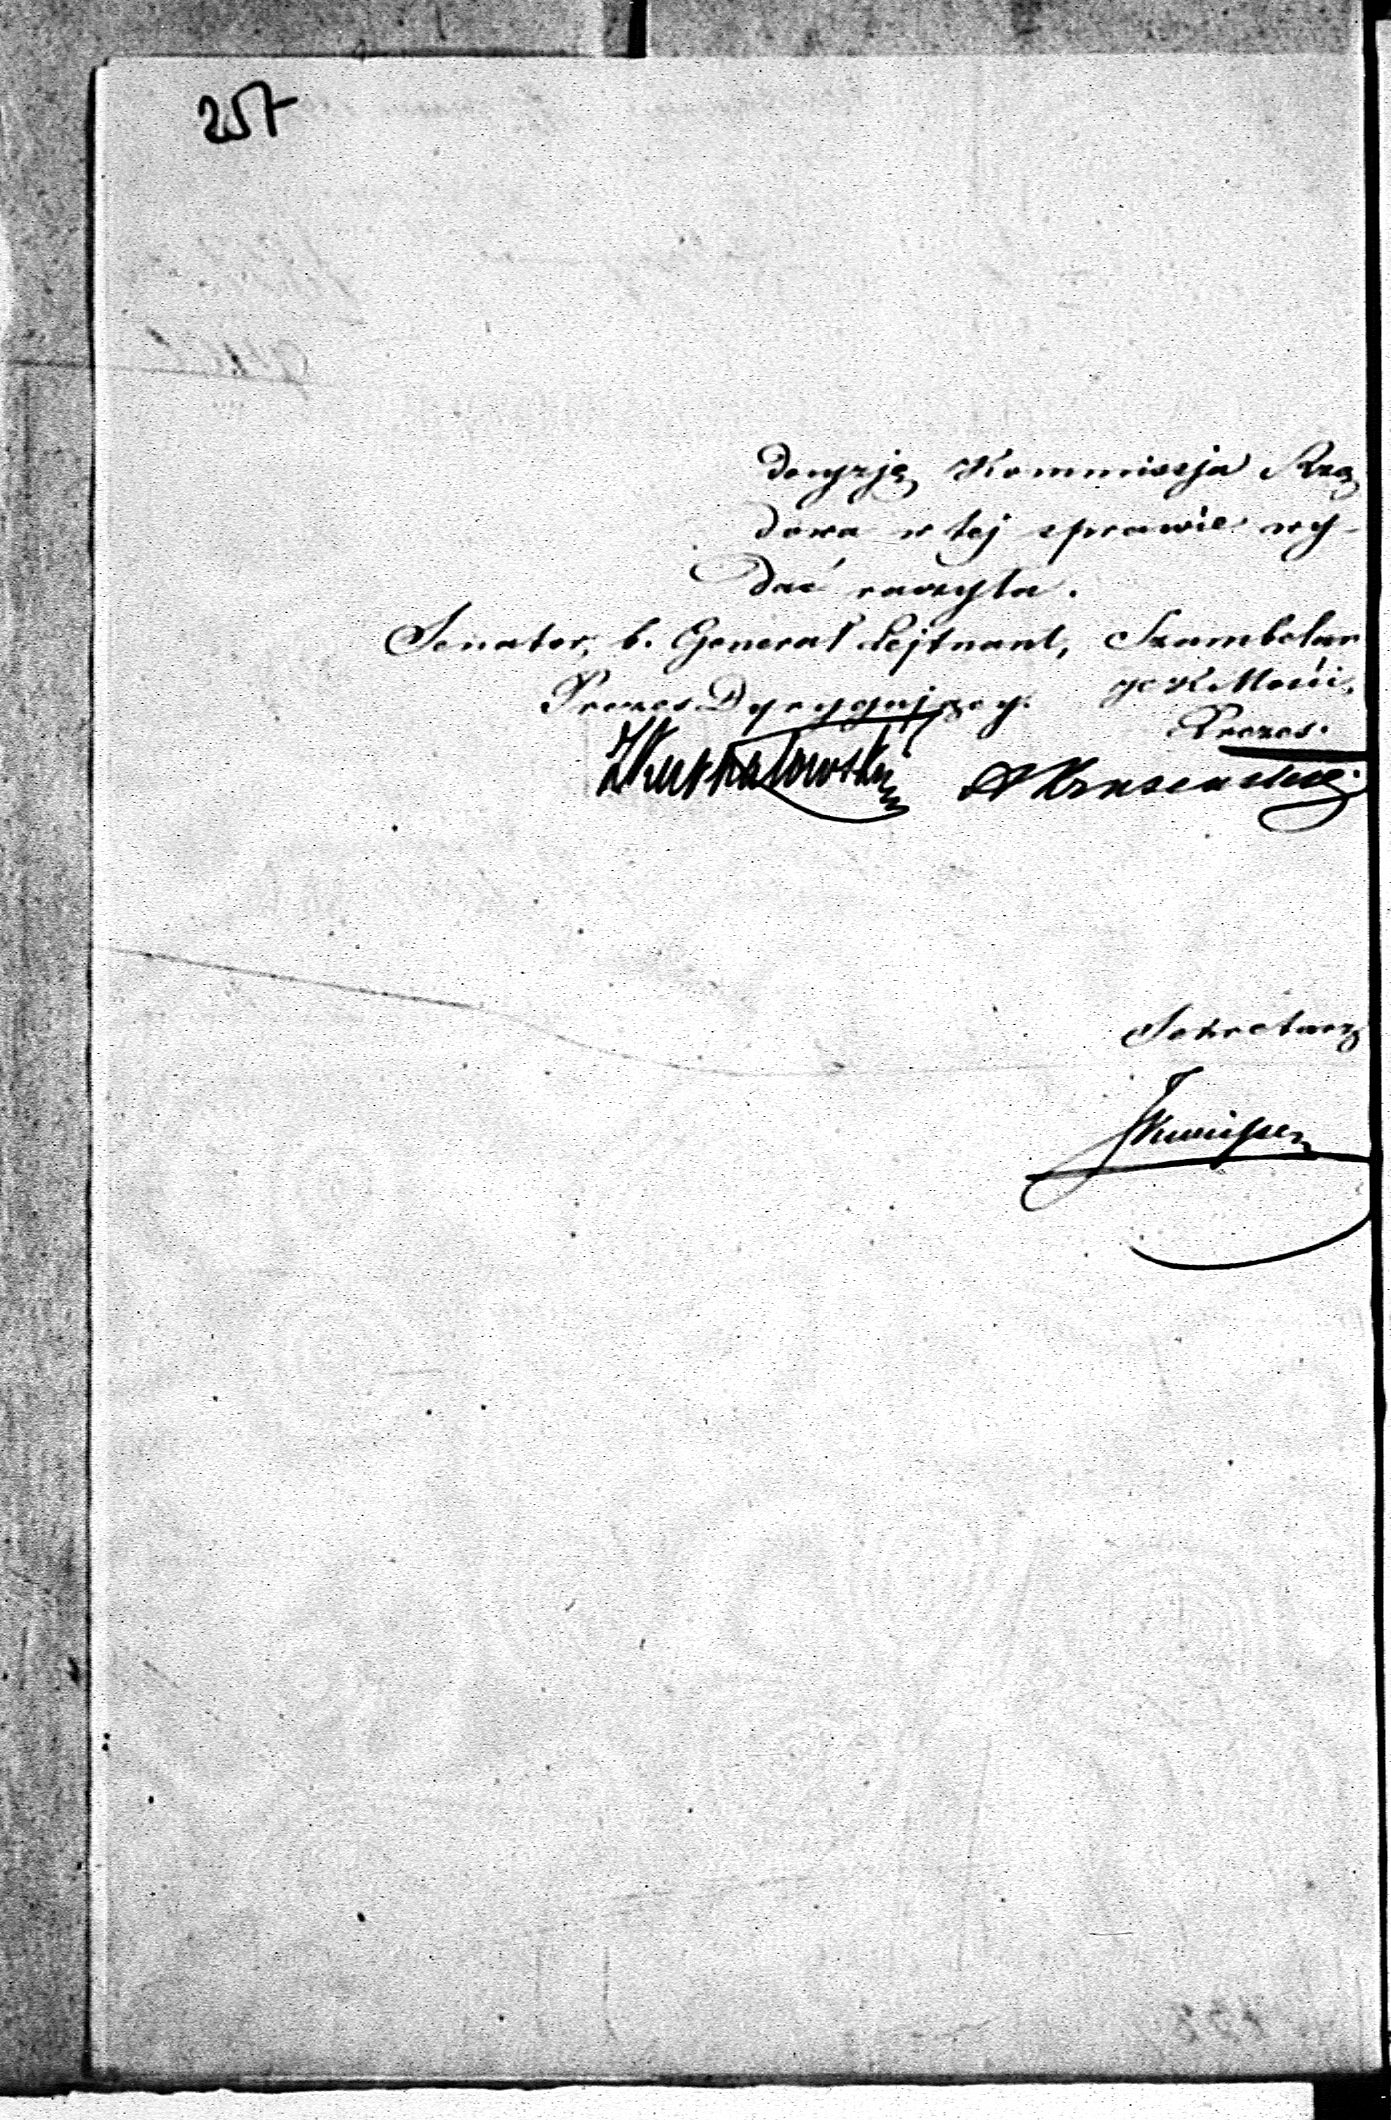 257
decyzję Kommissja Rzą
dowa w tej sprawie wy-
dać raczyła.
Senator, b. Generał Lejtnant, Szambelan
Prezes Dyrygujący. JCK Mości,
Prezes.
Sekretarz